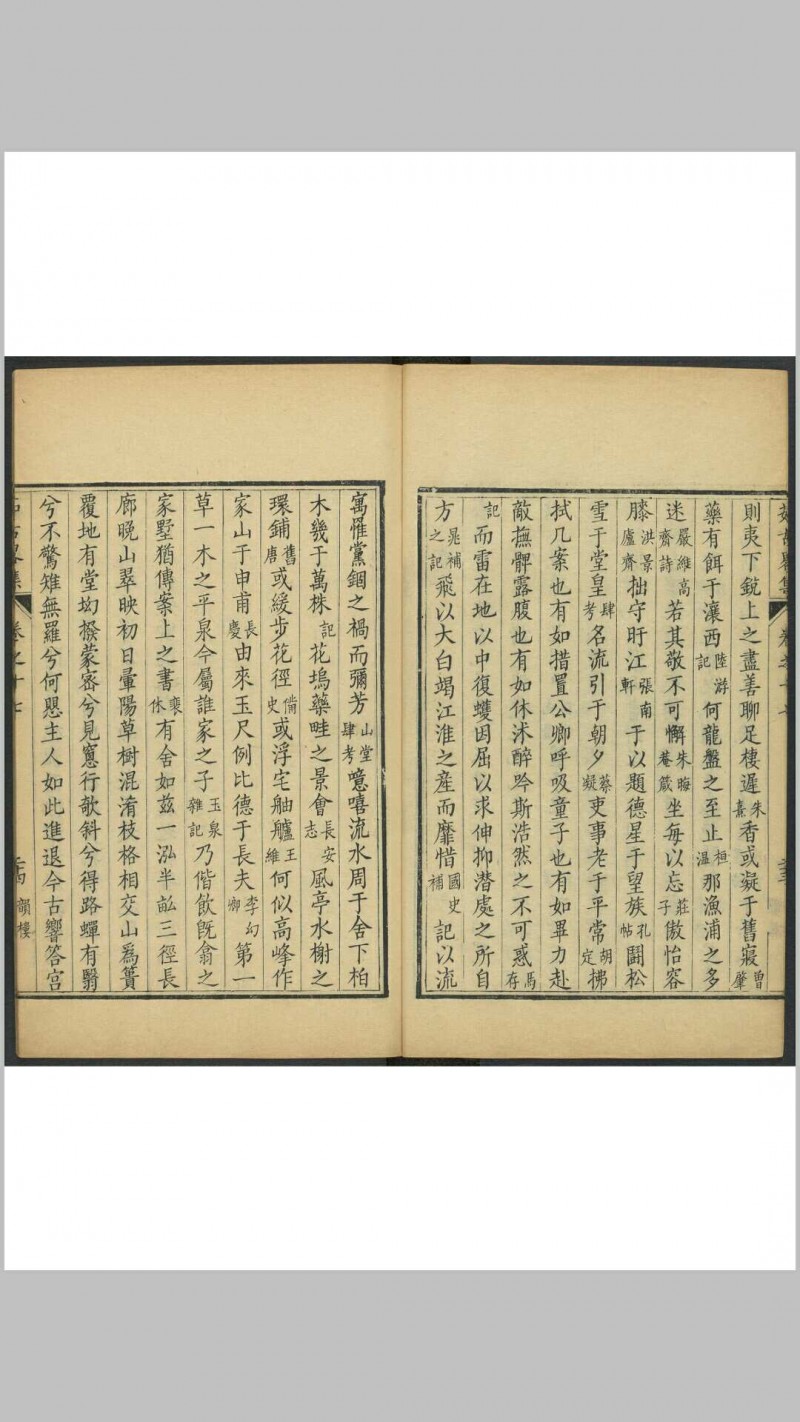 則夷下銳上之盡善聊足棲遲朱熹香或凝于舊寢曾肇
藥有餌于瀼西陸游記何龍盤之至止桓溫那漁浦之多
迷嚴維高齋詩若其敬不可懈朱晦菴箴坐每以忘莊子傲怡容
膝洪景盧齋拙守盱江張南軒于以題德星于望族孔帖鬭松
雪于堂皇肆考名流引于朝夕蔡凝吏事老于平常胡定拂
拭几案也有如措置公卿呼吸童子也有如畢力赴
敵撫髀露腹也有如休沐醉吟斯浩然之不可惑馬存
記而雷在地以中復蠖因屈以求伸抑潛處之所自
方晁補之記飛以大白竭江淮之産而靡惜國史補記以流
寓惟黨錮之禍而彌芳山堂肆考噫嘻流水周于舍下柏
木幾于萬株記花塢藥畦之景會長安志風亭水榭之
環鋪舊唐或緩步花徑備史或浮宅舳艫王維何似高峰作
家山于申甫長慶由來玉尺例比德于長夫李幻卿第一
草一木之平泉今屬誰家之子玉泉雜記乃偕飲既翕之
家墅猶傳案上之書裴休有舍如茲一泓半畝三徑長
廊晚山翠映初日暈陽草樹混淆枝格相交山為簣
覆地有堂坳撥蒙密兮見窻行欹斜兮得路蟬有翳
兮不驚雉無羅兮何愳主人如此進退今古響答宫
卷之十七
韻樓